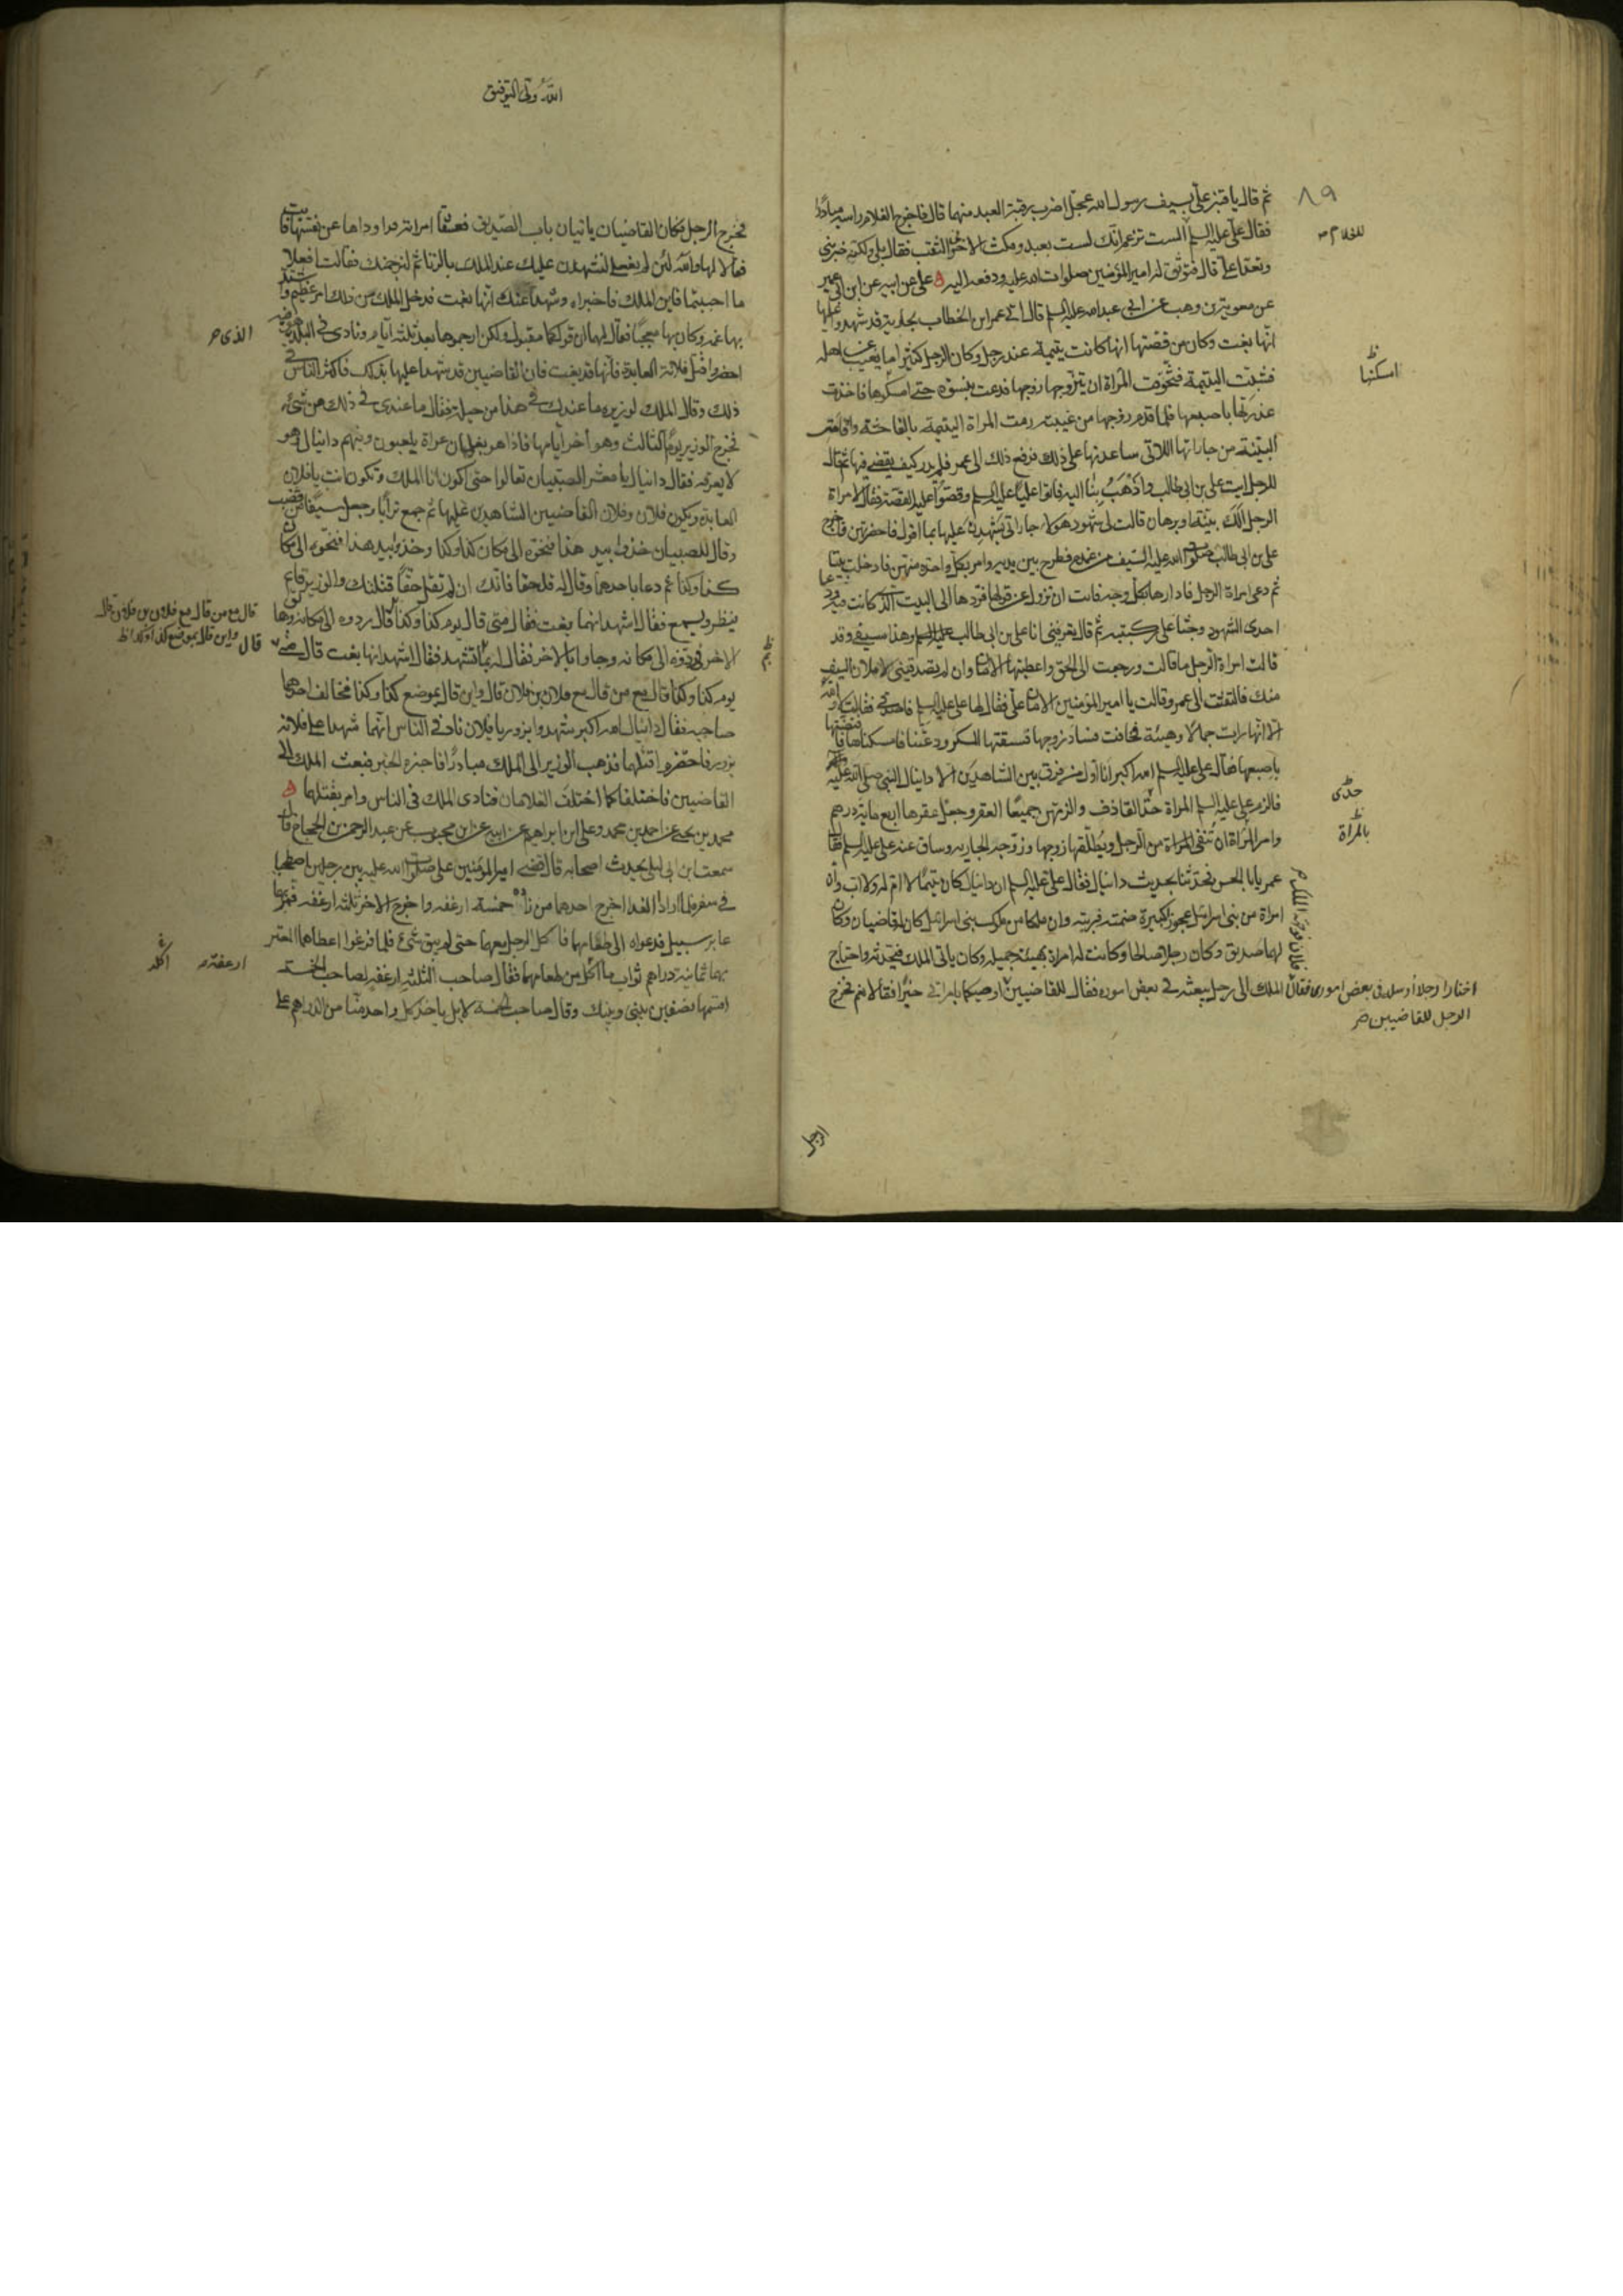 ثم قال يا قنبر علي بسيف رسول الله عجل اضرب رقبة العبد منهما قال فاخرج الغلام راسه مبادرا
فقال علي عليه السلم الست تزعم انك لست بعبد ومكث الاخر في الثقب فقال بلى ولكنه ضربني
وتعدى علي قال فتوثق له امير المؤمنين صلوات الله عليه ودفعه اليه ه علي عن ابيه عن ابن ابي عمير
عن معوية بن وهب عن ابي عبد الله عليه السلم قال اتي عمر ابن الخطاب بجارية قد شهدوا عليها
انها بغت وكان من قصتها انها كانت يتيمة عند رجل وكان الرجل كثيرا ما يغيب عن اهله
فشبت اليتيمة فتخوفت المراة ان يتزوجها زوجها فدعت بنسوة حتى امسكوها فاخذت
عذرتها باصبعها فلما قدم زوجها من غيبته رمت المراة اليتيمة بالفاحشة واقامت
البينة من جاراتها اللاتي ساعدنها على ذلك فرفع ذلك الى عمر فلم يدر كيف يقضي فيها ثم قال
للرجل ايت علي بن ابي طالب واذهب بنا اليه فاتوا عليا عليه السلم وقصوا عليه القصة فقال لامراة
الرجل الك بينة او برهان قالت لي شهود هؤلاء جاراتي يشهدن عليها بما اقول فاحضرتهن فاخرج
علي بن ابي طالب صلوات الله عليه السيف من غمده فطرح بين يديه وامر بكل واحدة منهن فادخلت بيتا
ثم دعى امراة الرجل فادارها بكل وجه فابت ان تزول عن قولها فردها الى البيت الذي كانت فيه ودعا
احدى الشهود وجثا على ركبتيه ثم قال تعرفيني انا علي بن ابي طالب عليه السلم وهذا سيفي وقد
قالت امراة الرجل ما قالت ورجعت الى الحق واعطيتها الامان وان لم تصدقيني لاملان السيف
منك فالتفتت الى عمر وقالت يا امير المؤمنين الامان علي فقال لها علي عليه السلم فاصدقي فقالت لا والله
الا انها رات جمالا وهيئة فخافت فساد زوجها فسقتها المسكر ودعتنا فامسكناها فافتضتها
باصبعها فقال علي عليه السلم الله اكبر انا اول من فرق بين الشاهدين الا دانيال النبي صلى الله عليه
فالزم علي عليه السلم المراة حد القاذف والزمهن جميعا العقر وجعل عقرها اربع ماية درهم
وامر المراة ان تنفى المراة من الرجل ويطلقها زوجها وزوجه الجارية وساق عنه علي عليه السلم فقال
عمر يا ابا الحسن فحدثنا بحديث دانيال فقال علي عليه السلم ان دانيال كان يتيما لا ام له ولا اب وان
امراة من بني اسرائيل عجوزا كبيرة ضمته فربته وان ملكا من ملوك بني اسرائيل كان له قاضيان وكان
لهما صديق وكان رجلا صالحا وكانت له امراة بهيئة جميلة وكان ياتي الملك فيحدثه واحتاج
الملك الى رجل يبعثه في بعض اموره فقال للقاضيين اوصيكما بامراتي خيرا فقالا نعم فخرج
٨٩
للغلام
امسكنها
حدى
بالمراة
اختارا رجلا ارسله في بعض اموري فقالا
الرجل للقاضيين
الرجل
الله ولي التوفيق
فخرج الرجل فكان القاضيان ياتيان باب الصديق فعشقا امراته فراوداها عن نفسها فابت
فقالا لها والله لئن لم تفعلي لنشهدن عليك عند الملك بالزنا ثم لنرجمنك فقالت افعلا
ما احببتما فاتيا الملك فاخبراه وشهدا عنده انها بغت فدخل الملك من ذلك امر عظيم واشتد
بها غمه وكان بها معجبا فقال لهما ان قولكما مقبول ولكن ارجموها بعد ثلثة ايام ونادى في البلد
احضروا قتل فلانة العابدة فانها قد بغت فان القاضيين قد شهدا عليها بذلك فاكثر الناس في
ذلك وقال الملك لوزيره ما عندك في هذا من حيلة فقال ما عندي في ذلك من شيء
فخرج الوزير يوم الثالث وهو اخر ايامها فاذا هو بغلمان عراة يلعبون وفيهم دانيال وهو
لا يعرفه فقال دانيال يا معشر الصبيان تعالوا حتى اكون انا الملك وتكون انت يا فلان
العابدة ويكون فلان وفلان القاضيين الشاهدين عليها ثم جمع ترابا وجعل سيفا من قصب
وقال للصبيان خذوا بيد هذا فنحوه الى مكان كذا وكذا وخذوا بيد هذا فنحوه الى مكان
كذا وكذا ثم دعا باحدهما وقال له قل حقا فانك ان لم تقل حقا قتلتك والوزير قائم
ينظر ويسمع فقال اشهد انها بغت فقال متى قال يوم كذا وكذا قال ردوه الى مكانه وهاتوا
الاخر فردوه الى مكانه وجاوا بالاخر فقال له بما تشهد فقال اشهد انها بغت قال متى قال
يوم كذا وكذا قال مع من قال مع فلان بن فلان قال واين قال بموضع كذا وكذا فخالف احدهما
صاحبه فقال دانيال الله اكبر شهدوا بزور يا فلان ناد في الناس انهما شهدا على فلانة
بزور فاحضروا قتلهما فذهب الوزير الى الملك مبادرا فاخبره الخبر فبعث الملك الى
القاضيين فاختلفا كما اختلف الغلامان فنادى الملك في الناس وامر بقتلهما ه
محمد بن يحيى عن احمد بن محمد وعلي ابن ابراهيم عن ابيه عن ابن محبوب عن عبد الرحمن بن الحجاج قال
سمعت ابن ابي ليلى يحدث اصحابه قال قضى امير المؤمنين صلوات الله عليه بين رجلين اصطحبا
في سفر فلما ارادا الغدا اخرج احدهما من زاده خمسة ارغفه واخرج الاخر ثلثه ارغفه فمر بهما
عابر سبيل فدعواه الى طعامهما فاكل الرجل معهما حتى لم يبق شيء فلما فرغوا اعطاهما المعتر
بهما ثمانية دراهم ثواب ما اكل من طعامهما فقال صاحب الثلثة ارغفه لصاحب الخمسة
اقسمها نصفين بيني وبينك وقال صاحب الخمسة لا بل ياخذ كل واحد منا من الدراهم على
الذي
قال مع من قال مع فلان بن فلان قال
واين قال بموضع كذا وكذا
قال
ارغفة
اكله